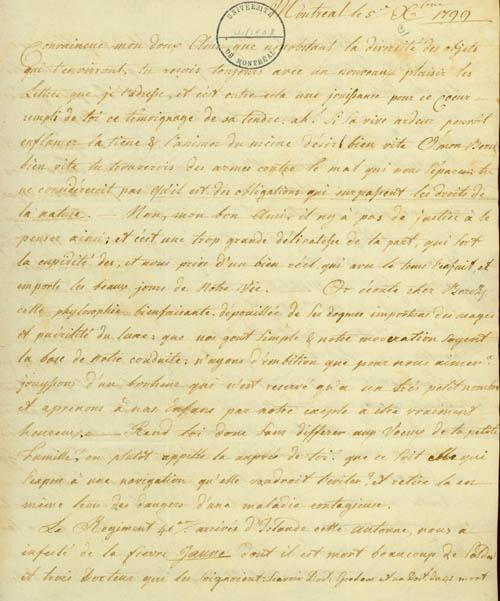 Montreal le 5 Xbre 1799
UNIVERSITÉ DE MONTRÉAL
Convaincue mon doux Amis, que nonobstant la diversité des objets
qui t'environt, tu reçois toujours avec un nouveaux plaisir les
Lettres que je t'adresse, et c'est outre cela une jouissance pour ce Coeur
rempli de toi ce temoignage de sa tendre. ah! Si la vive ardeur pouvoit
enflamer la tiene & l'animer du meme désir! bien vite O mon
bien vite tu trouverois des armes contre le mal qui nous separe, tu
ne considererois pas qu'il est des obligations qui surpassent les droits de
la nature. — Non, mon bon Ami, il ny a pas de justice à le
penser ainsi; et c'est une trop grande délicatesse de ta part, qui sert
la cupidité des, et nous prive d'un bien réel, qui avec le tems s'enfuit, et
emporte les beaux jours de notre vie. Or écoute cher
cette phylosophie bienfaisante, dépouillée de les dogmes imposteurs des usages
et puérilité du luxe: que nos gout simple & notre moderation soyent
la base de notre conduite; n'ayons d'embition que pour nous aimer
jouyssons d'un bonheur qui n'est reservé qu'a un trés petit nombre
et aprenons à nos Enfans par notre exemple a etre vraiment
heureux. — Rend toi donc sans differer aux Voeux de ta petite
famille? ou plutôt appelle la auprès de toi: que ce soit elle qui
s'expose à une navigation qu'elle voudroit t'eviter? et retire la en
même tems des dangers d'une maladie contagieuse.
Le Regiment 41e arrivés d'Islande cette Automne, nous a
infecté de la fievre Jaune dont il est mort beaucoup de
et trois Docteur qui les soignoient: Scavoir Doct. Graham et un Doct. du 41 mort